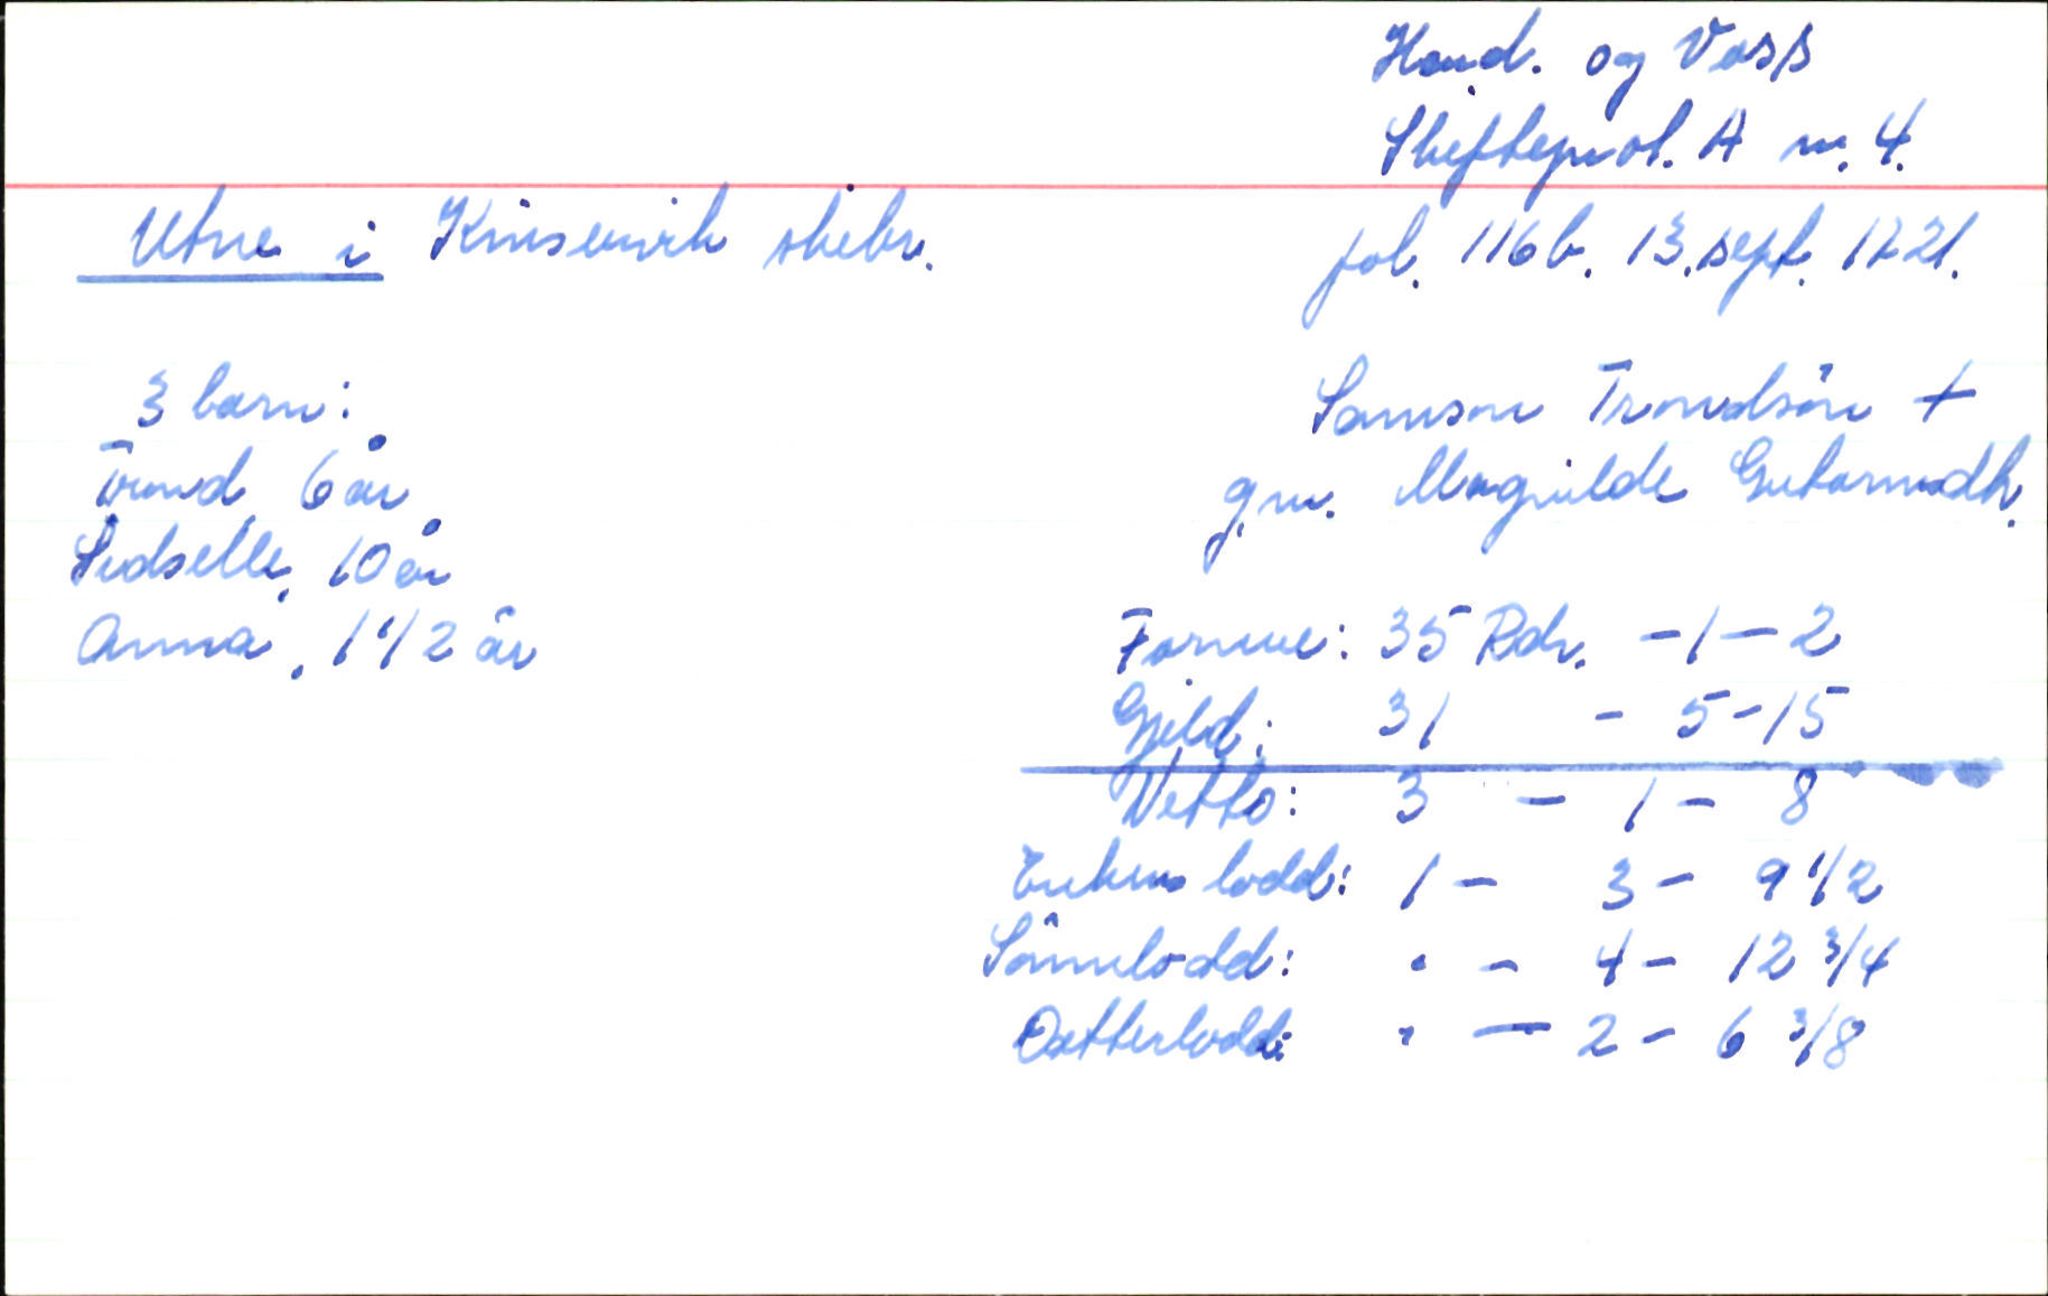 Hard. og Voss
Skifteprot. A nr. 4.
Utne i Kinservik skibr.
fol. 116b. 13. sept. 1721.
3 barn:
Trond 6 år
Sidselle, 10 år
Anna, 1 1/2 år
Samson Trondsön +
g.m. Magnilde Gutormsdtr.
Formue: 35 Rdr. - 1 - 2
Gjeld: 31 - 5 - 15
Netto: 3 - 1 - 8
Enkens lodd: 1 - 3 - 9 1/2
Sönnelodd: " - 4 - 12 3/4
Dotterlodd: " - 2 - 6 3/8